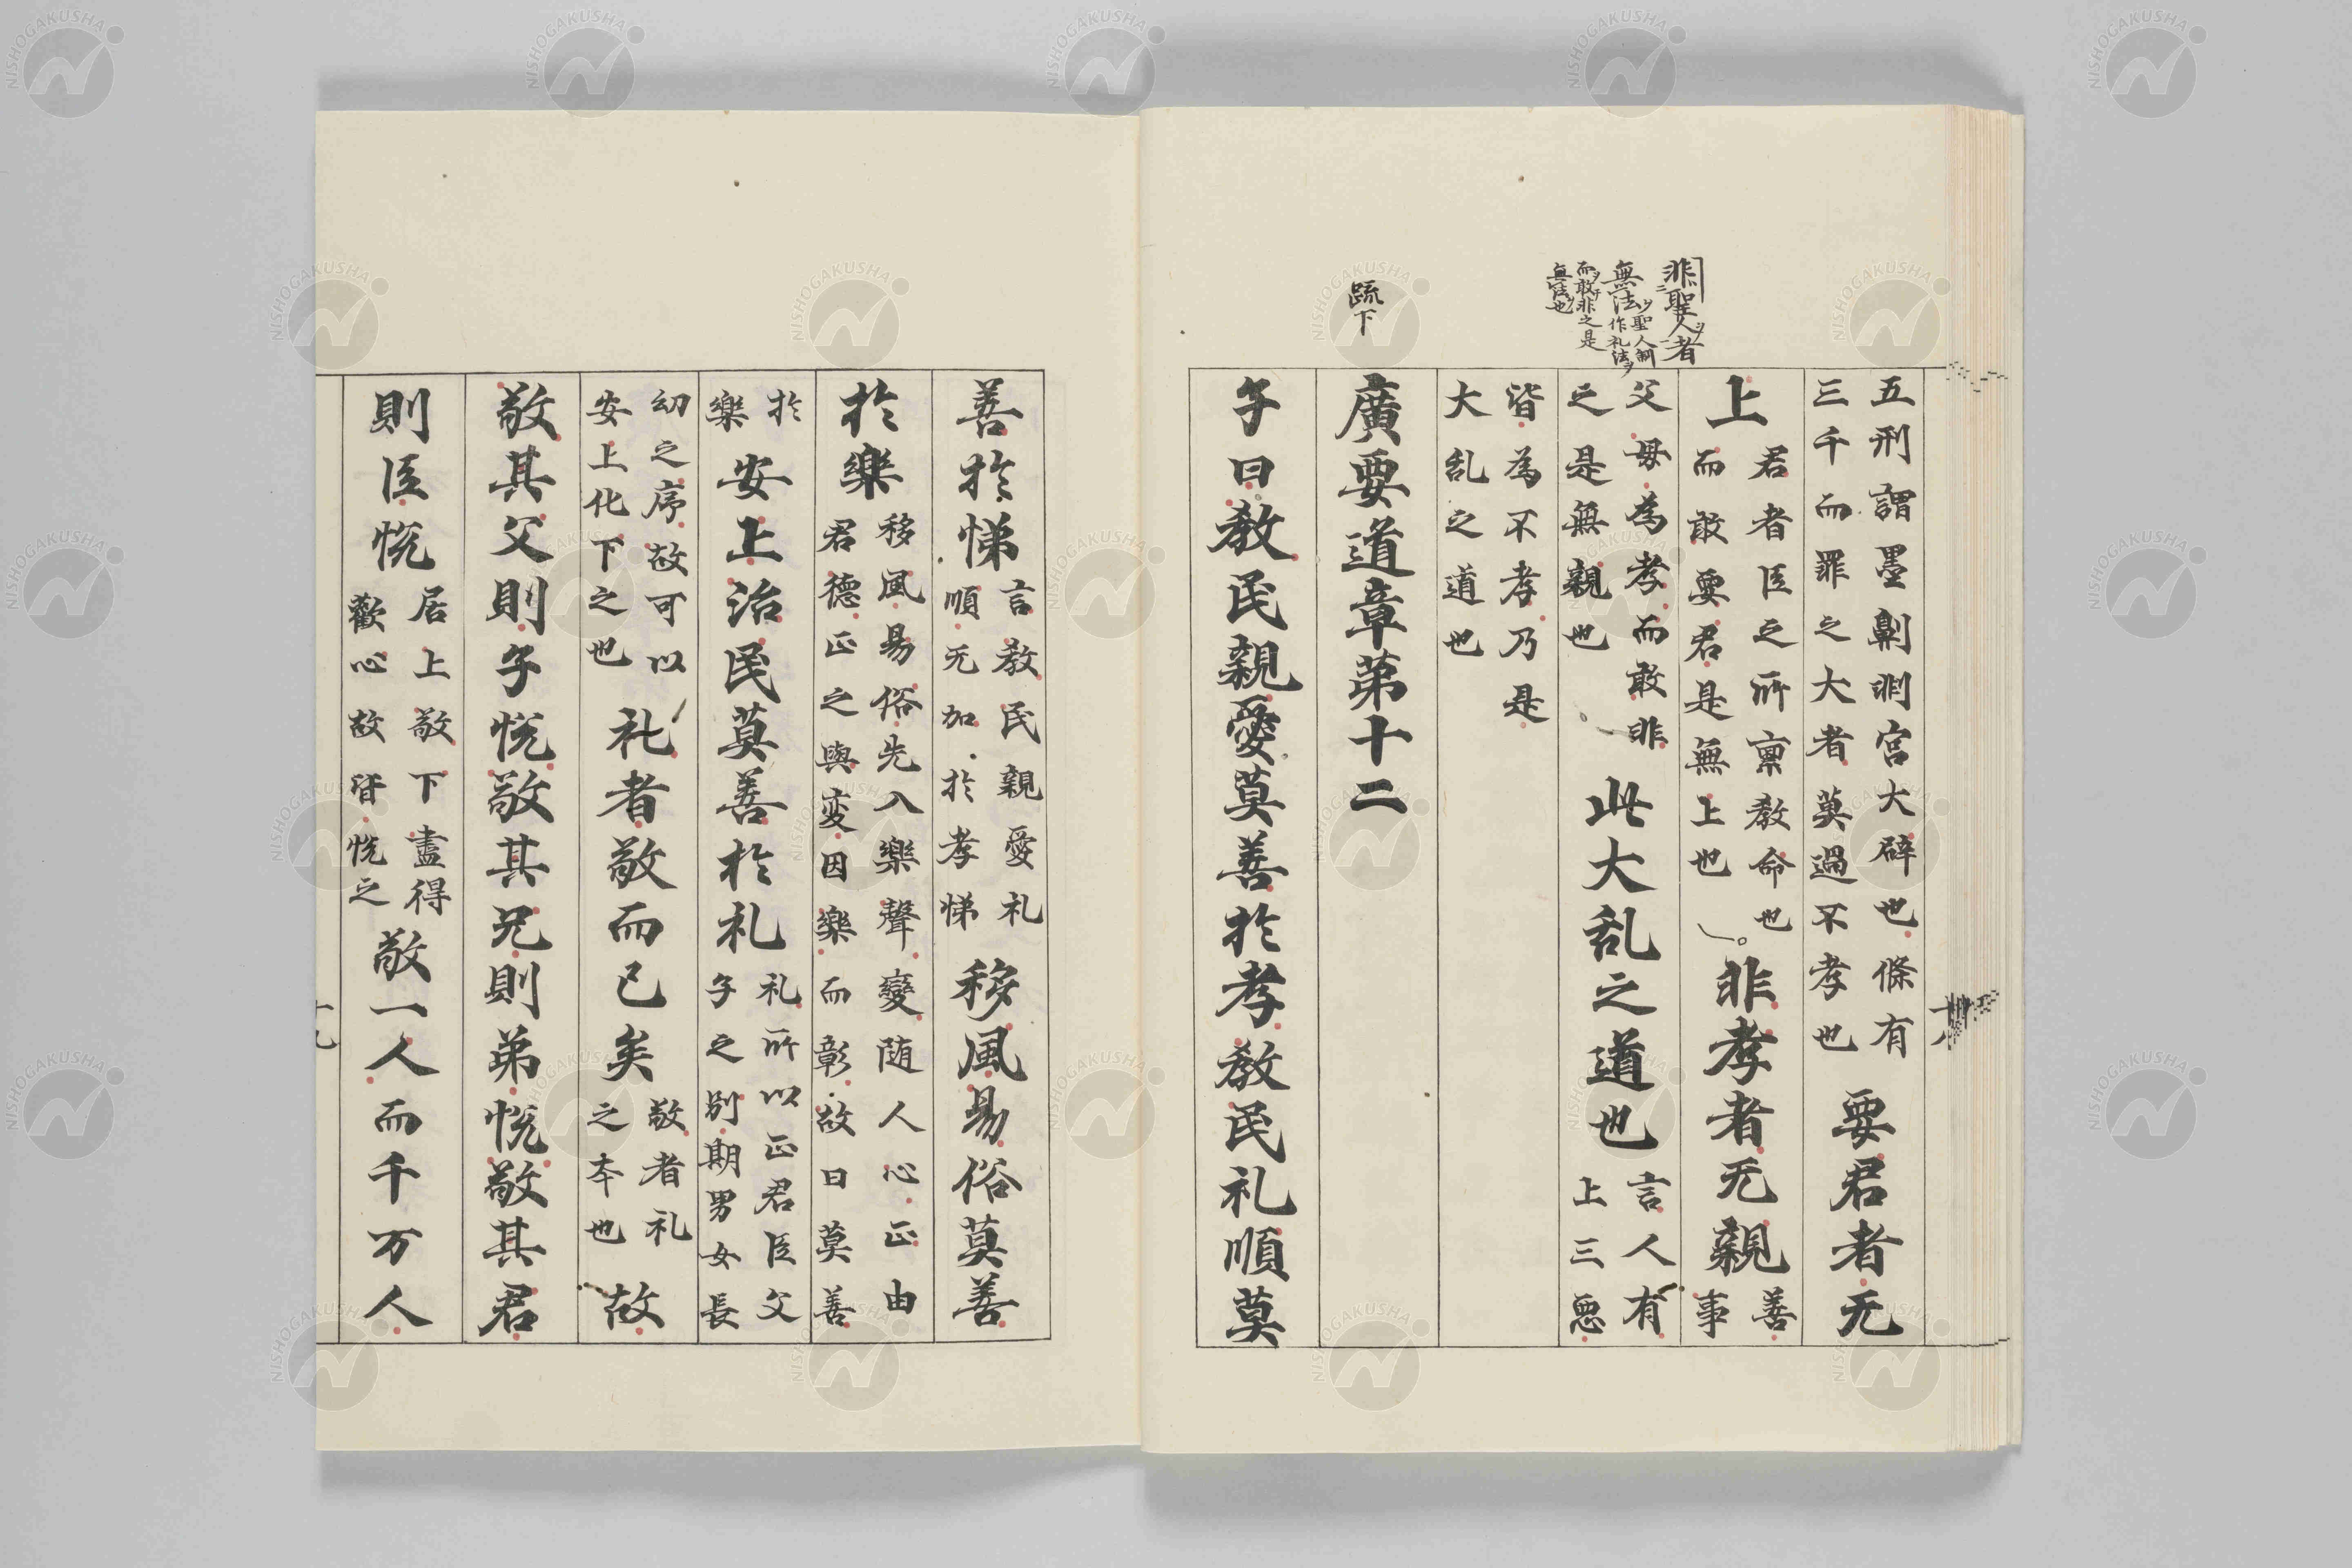 非聖人者
無法
聖人制
作礼法
而敢非之是
無法也
疏下
五刑謂墨劓剕宮大辟也條有
三千而罪之大者莫過不孝也
要君者无
上
君者臣之所禀教命也
而敢要君是無上也
非孝者无親
善事
父母為孝而敢非
之是無親也
此大乱之道也
言人有
上三惡
皆為不孝乃是
大乱之道也
廣要道章第十二
子曰教民親愛莫善於孝教民礼順莫
善於悌
言教民親愛礼
順无加於孝悌
移風易俗莫善
於樂
移風易俗先入樂聲變随人心正由
君德正之與变因樂而彰故曰莫善
於
樂
安上治民莫善於礼
礼所以正君臣父
子之別期男女長
幼之序故可以
安上化下之也
礼者敬而已矣
敬者礼
之本也
故
敬其父則子悅敬其兄則弟悅敬其君
則臣悅
居上敬下盡得
歡心故皆悅之
敬一人而千万人